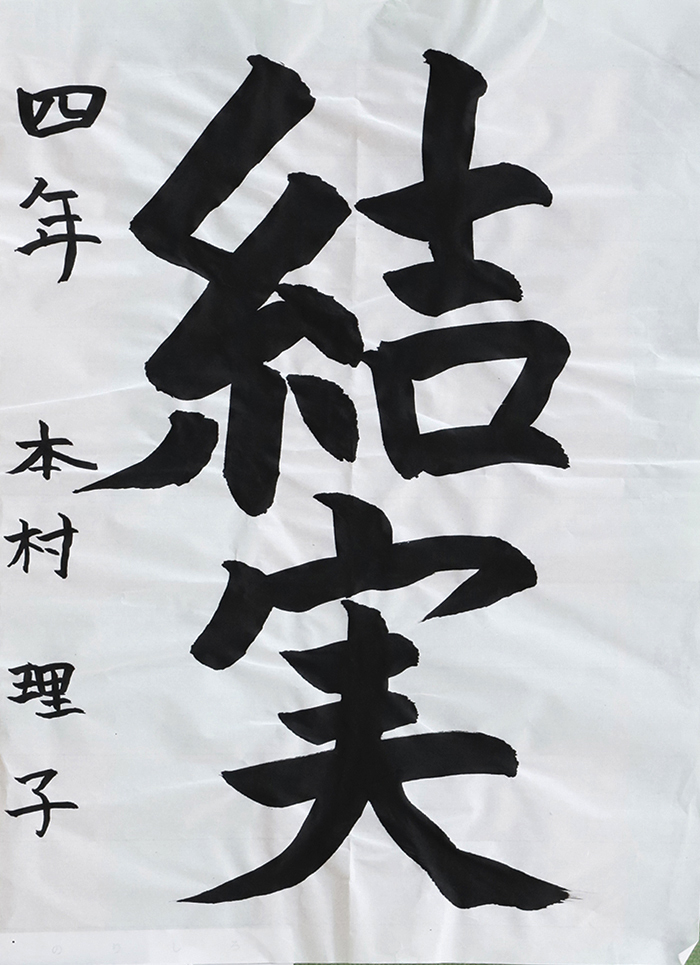 結実
四年 本村 理子